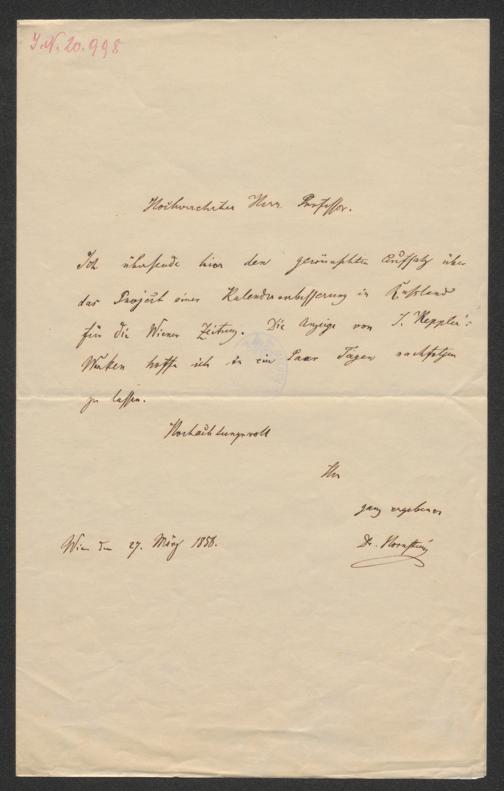 J.N. 20.998
Hochverehrter Herr Professor.
Ich übersende hier den gewünschten Aufsatz über
das Project einer Kalenderverbesserung in Rußland
für die Wiener Zeitung. Die Anzeige von J. Keppler's
Werken hoffe ich in ein Paar Tagen nachfolgen
zu lassen.
Hochachtungsvoll
Ihr
ganz ergebener
Dr. Hornstein
Wien den 27. März 1858.